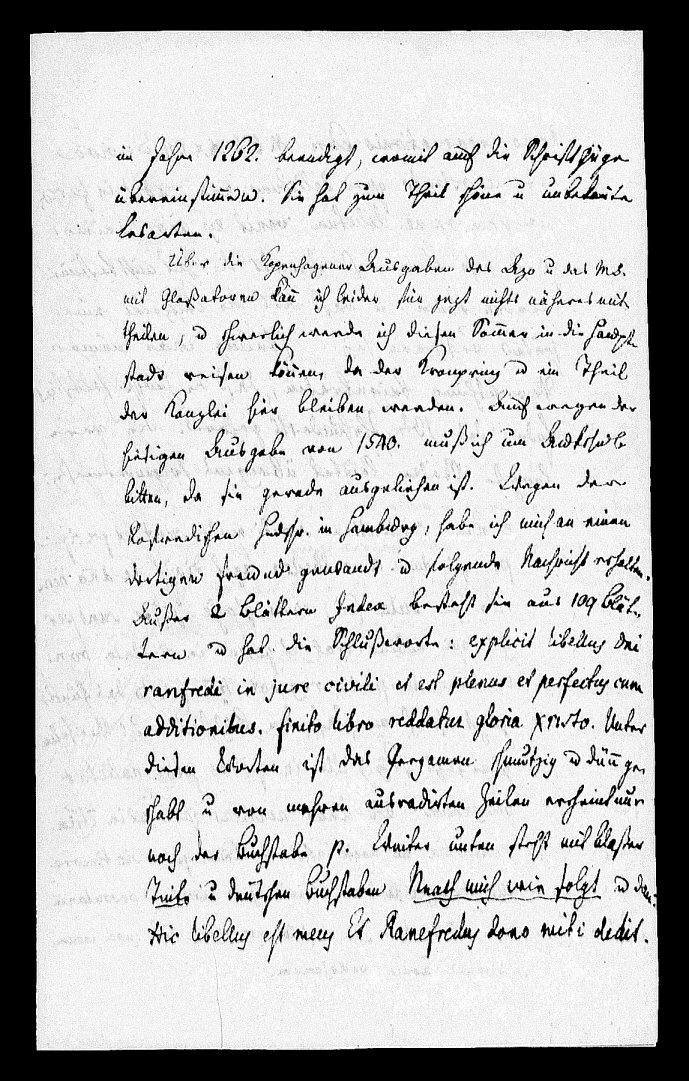 im Jahre 1262. beendigt, womit auch die Schriftzüge
übereinstimmen. Sie hat zum Theil schöne u unbekannte
Lesarten.
Über die Kopenhagener Ausgaben des Azo u das MS.
mit Glossatoren kann ich leider für jezt nichts näheres mit
theilen, u schwerlich werde ich diesen Sommer in die Haupt
stadt reisen können, da der Kronprinz u ein Theil
der Kanzlei hier bleiben werden. Auch wegen der
hiesigen Ausgabe von 1540. muß ich um
bitten, da sie gerade ausgeliehen ist. Wegen der
Handschr. in Hamburg, habe ich mich an einen
dortigen Freund gewandt u folgende Nachricht erhalten.
Außer 2 Blättern Index besteht sie aus 109 Blät-
tern u hat die Schlußworte: explicit libellus dni
ranfredi in jure civili et est plenus et perfectus cum
additionibus. finito libro reddatur gloria xristo. Unter
diesen Worten ist das Pergamen schmutzig u dünn ge-
schabt u von mehren ausradirten Zeilen erscheint nur
noch der Buchstabe p. Weiter unten steht mit blaßer
Tinte u deutschen Buchstaben Neath mich wie folgt u dan-
Hic libellus est meus Et Ranefredus dono mihi dedit.